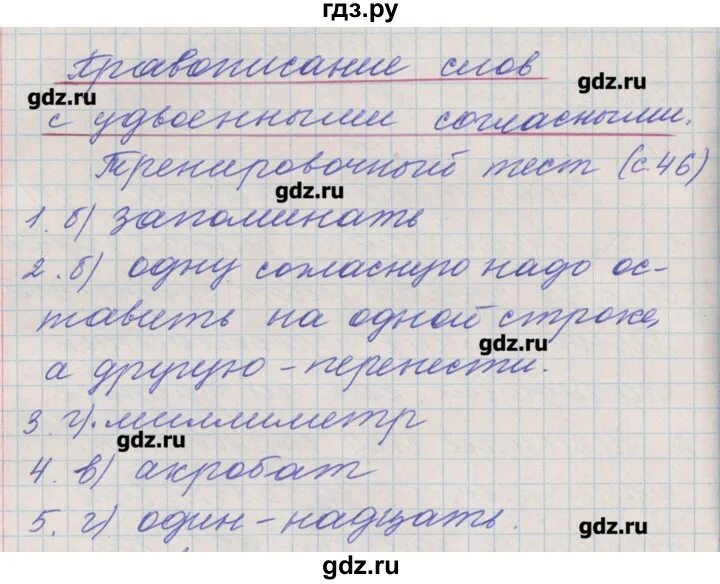 гдз.ру
Правописание слов
gdz.ru
gdz.ru
с удвоенными согласными.
Тренировочный тест (с.46)
gdz.ru
1. б) запоминать
2. б) одну согласную надо ос-
тавить на одной строке,
gdz.ru
а другую - перенести.
3. г). миллиметр
gdz.ru
4. в) акробат
5. г) один-надцать.
gdz.ru
gdz.ru